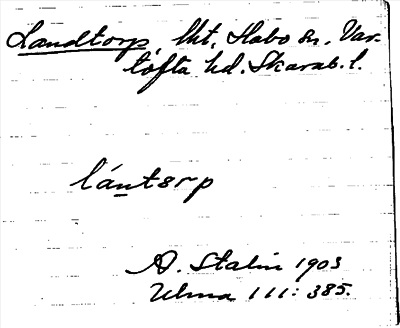 Landtorp lht. Habo sn. Var-
tofta hd. Skarab. l.
lántorp
A. Stalin 1903
Ulma 111: 385.